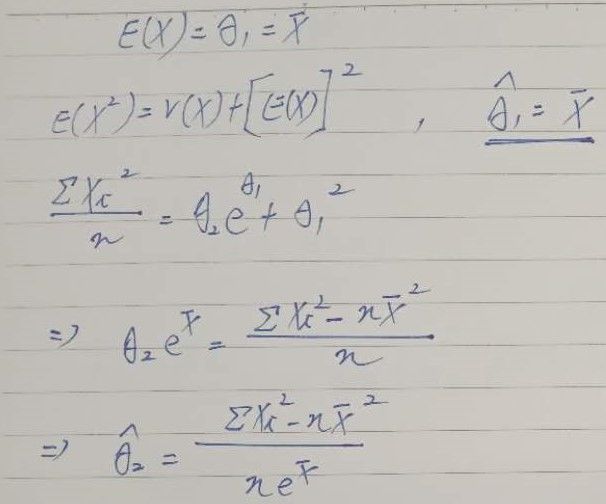 E(X) = θ₁ = X̄
E(X²) = V(X) + [E(X)]² , θ̂₁ = X̄
ΣXᵢ²/n = θ₂e^θ₁ + θ₁²
⇒ θ₂e^X̄ = (ΣXᵢ² - nX̄²)/n
⇒ θ̂₂ = (ΣXᵢ² - nX̄²)/(ne^X̄)